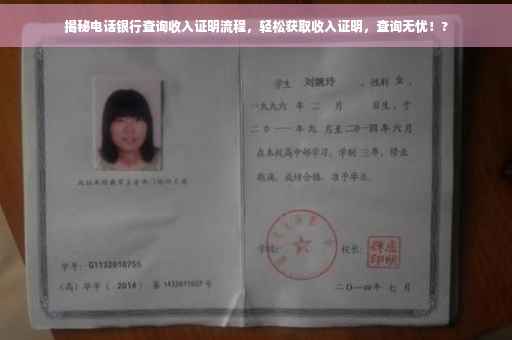 揭秘电话银行查询收入证明流程，轻松获取收入证明，查询无忧！?
学生 刘婉玲 ，性别 女 ，
一九九六 年 二 月 日生，于
二〇一一年九 月至二〇一四年六月
在本校高中部学习，学制 三年，修业
期满，成绩合格，准予毕业。
学校： 校长：
学号： G1132010755
（高）毕字（ 2014 ）第 1432011027 号
二〇一四年 七 月